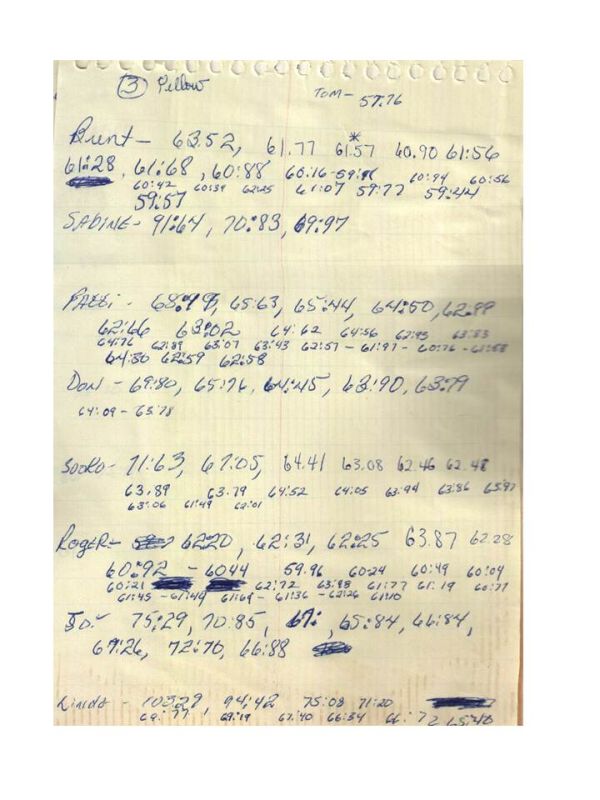 ③ Yellow TOM- 57.76
Brent- 63.52, 61.77 *61.57 60.90 61:56
61:28, 61:68, 60:88 60:16-59:91
60:42 60:39 62:25 61:07 59:77 60:94 59:44 60:56
59:57
SABINE- 91:64, 70:83, 69:97
PATTI- 68:49, 65:63, 65:44, 64:50, 62:99
62:66 63:02 64:62 64:56 62:93 63:83
64:76 62:89 63:07 63:43 62:57- 61:97- 60:76-61:58
64:30 62:59 62:58
DON- 69:80, 65:76, 64:45, 63:90, 63:79
64:09-63:78
71:63, 67:05, 64.41 63.08 62.46 62.48
63.89 63.79 64:52 64:05 63:94 63:86 63:97
63:06 61:49 62:01
ROGER- 62:20, 62:31, 62:25 63.87 62.28
60:92 - 60:44 59.96 60:24 60:49 60:04
60:21 62:72 63:98 61:77 61:19 60:77
61:45-61:44 61:69- 61:36-62:26 61:10
JO- 75:29, 70:85, 67:, 65:84, 66:84,
67:26, 72:70, 66:88
Linda- 103:29, 94:42 75:08 71:20
69:77 69:19 67:40 66:34 66:72 65:40